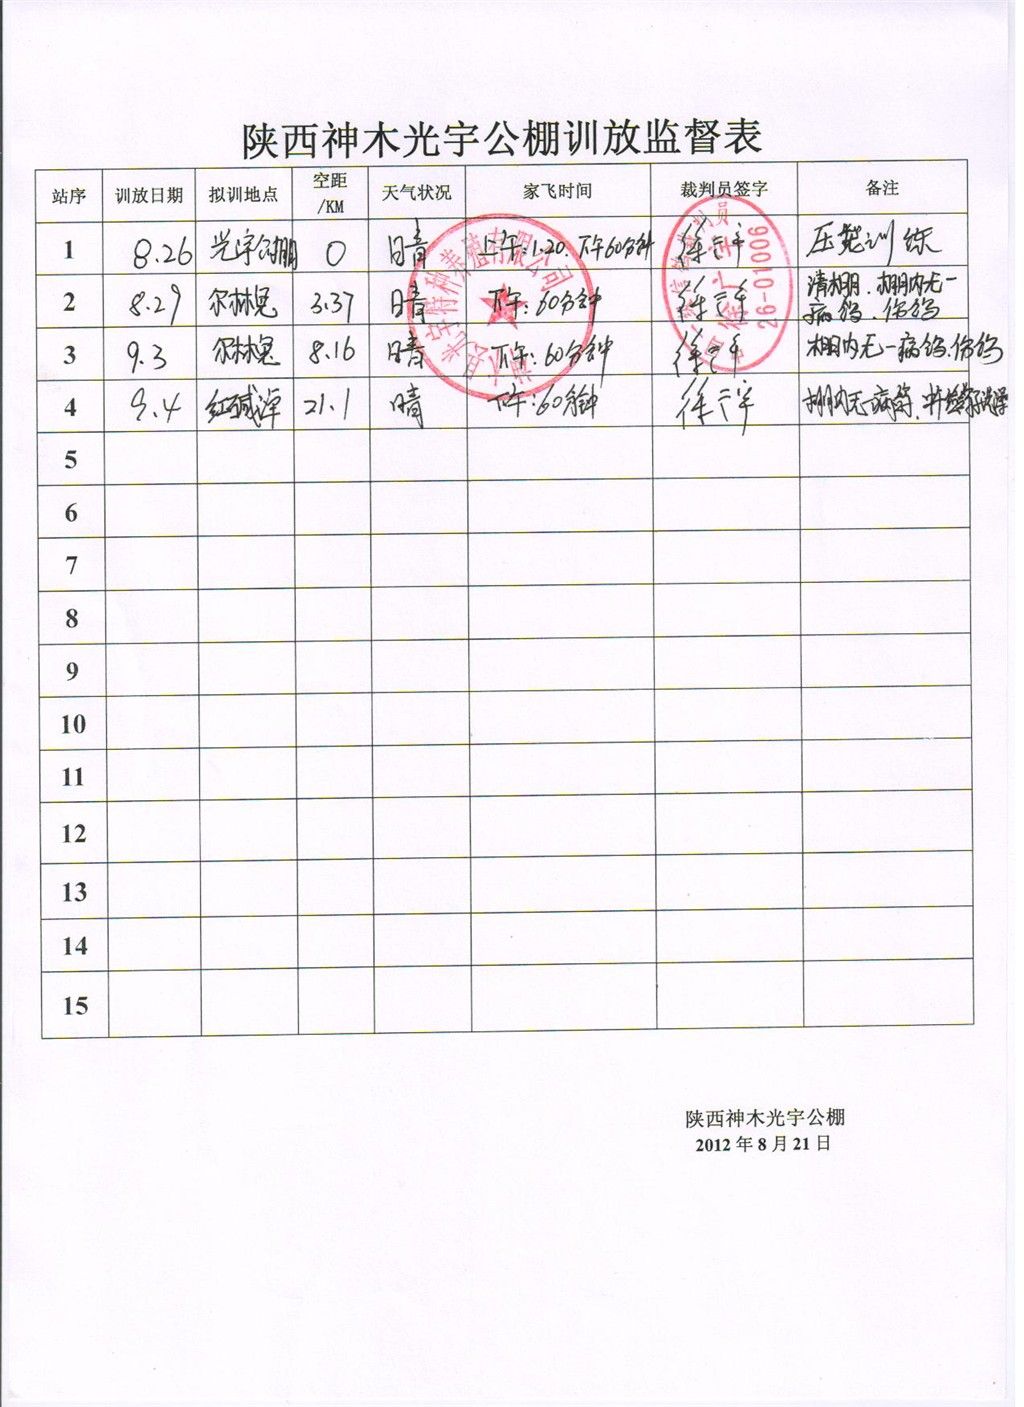 陕西神木光宇公棚训放监督表
站序 训放日期 拟训地点 空距/KM 天气状况 家飞时间 裁判员签字 备注
1 8.26 光宇公棚 0 晴 上午:1.20.下午60分钟 徐 压笼训练
2 8.29 尔林兔 3.37 晴 下午:60分钟 徐 清棚.棚内无一病鸽.伤鸽
3 9.3 尔林兔 8.16 晴 下午:60分钟 徐 棚内无一病鸽.伤鸽
4 9.4 红碱淖 21.1 晴 下午:60分钟 徐 棚内无病鸽.
5
6
7
8
9
10
11
12
13
14
15
26-01006
陕西神木光宇公棚
2012 年 8 月 21 日